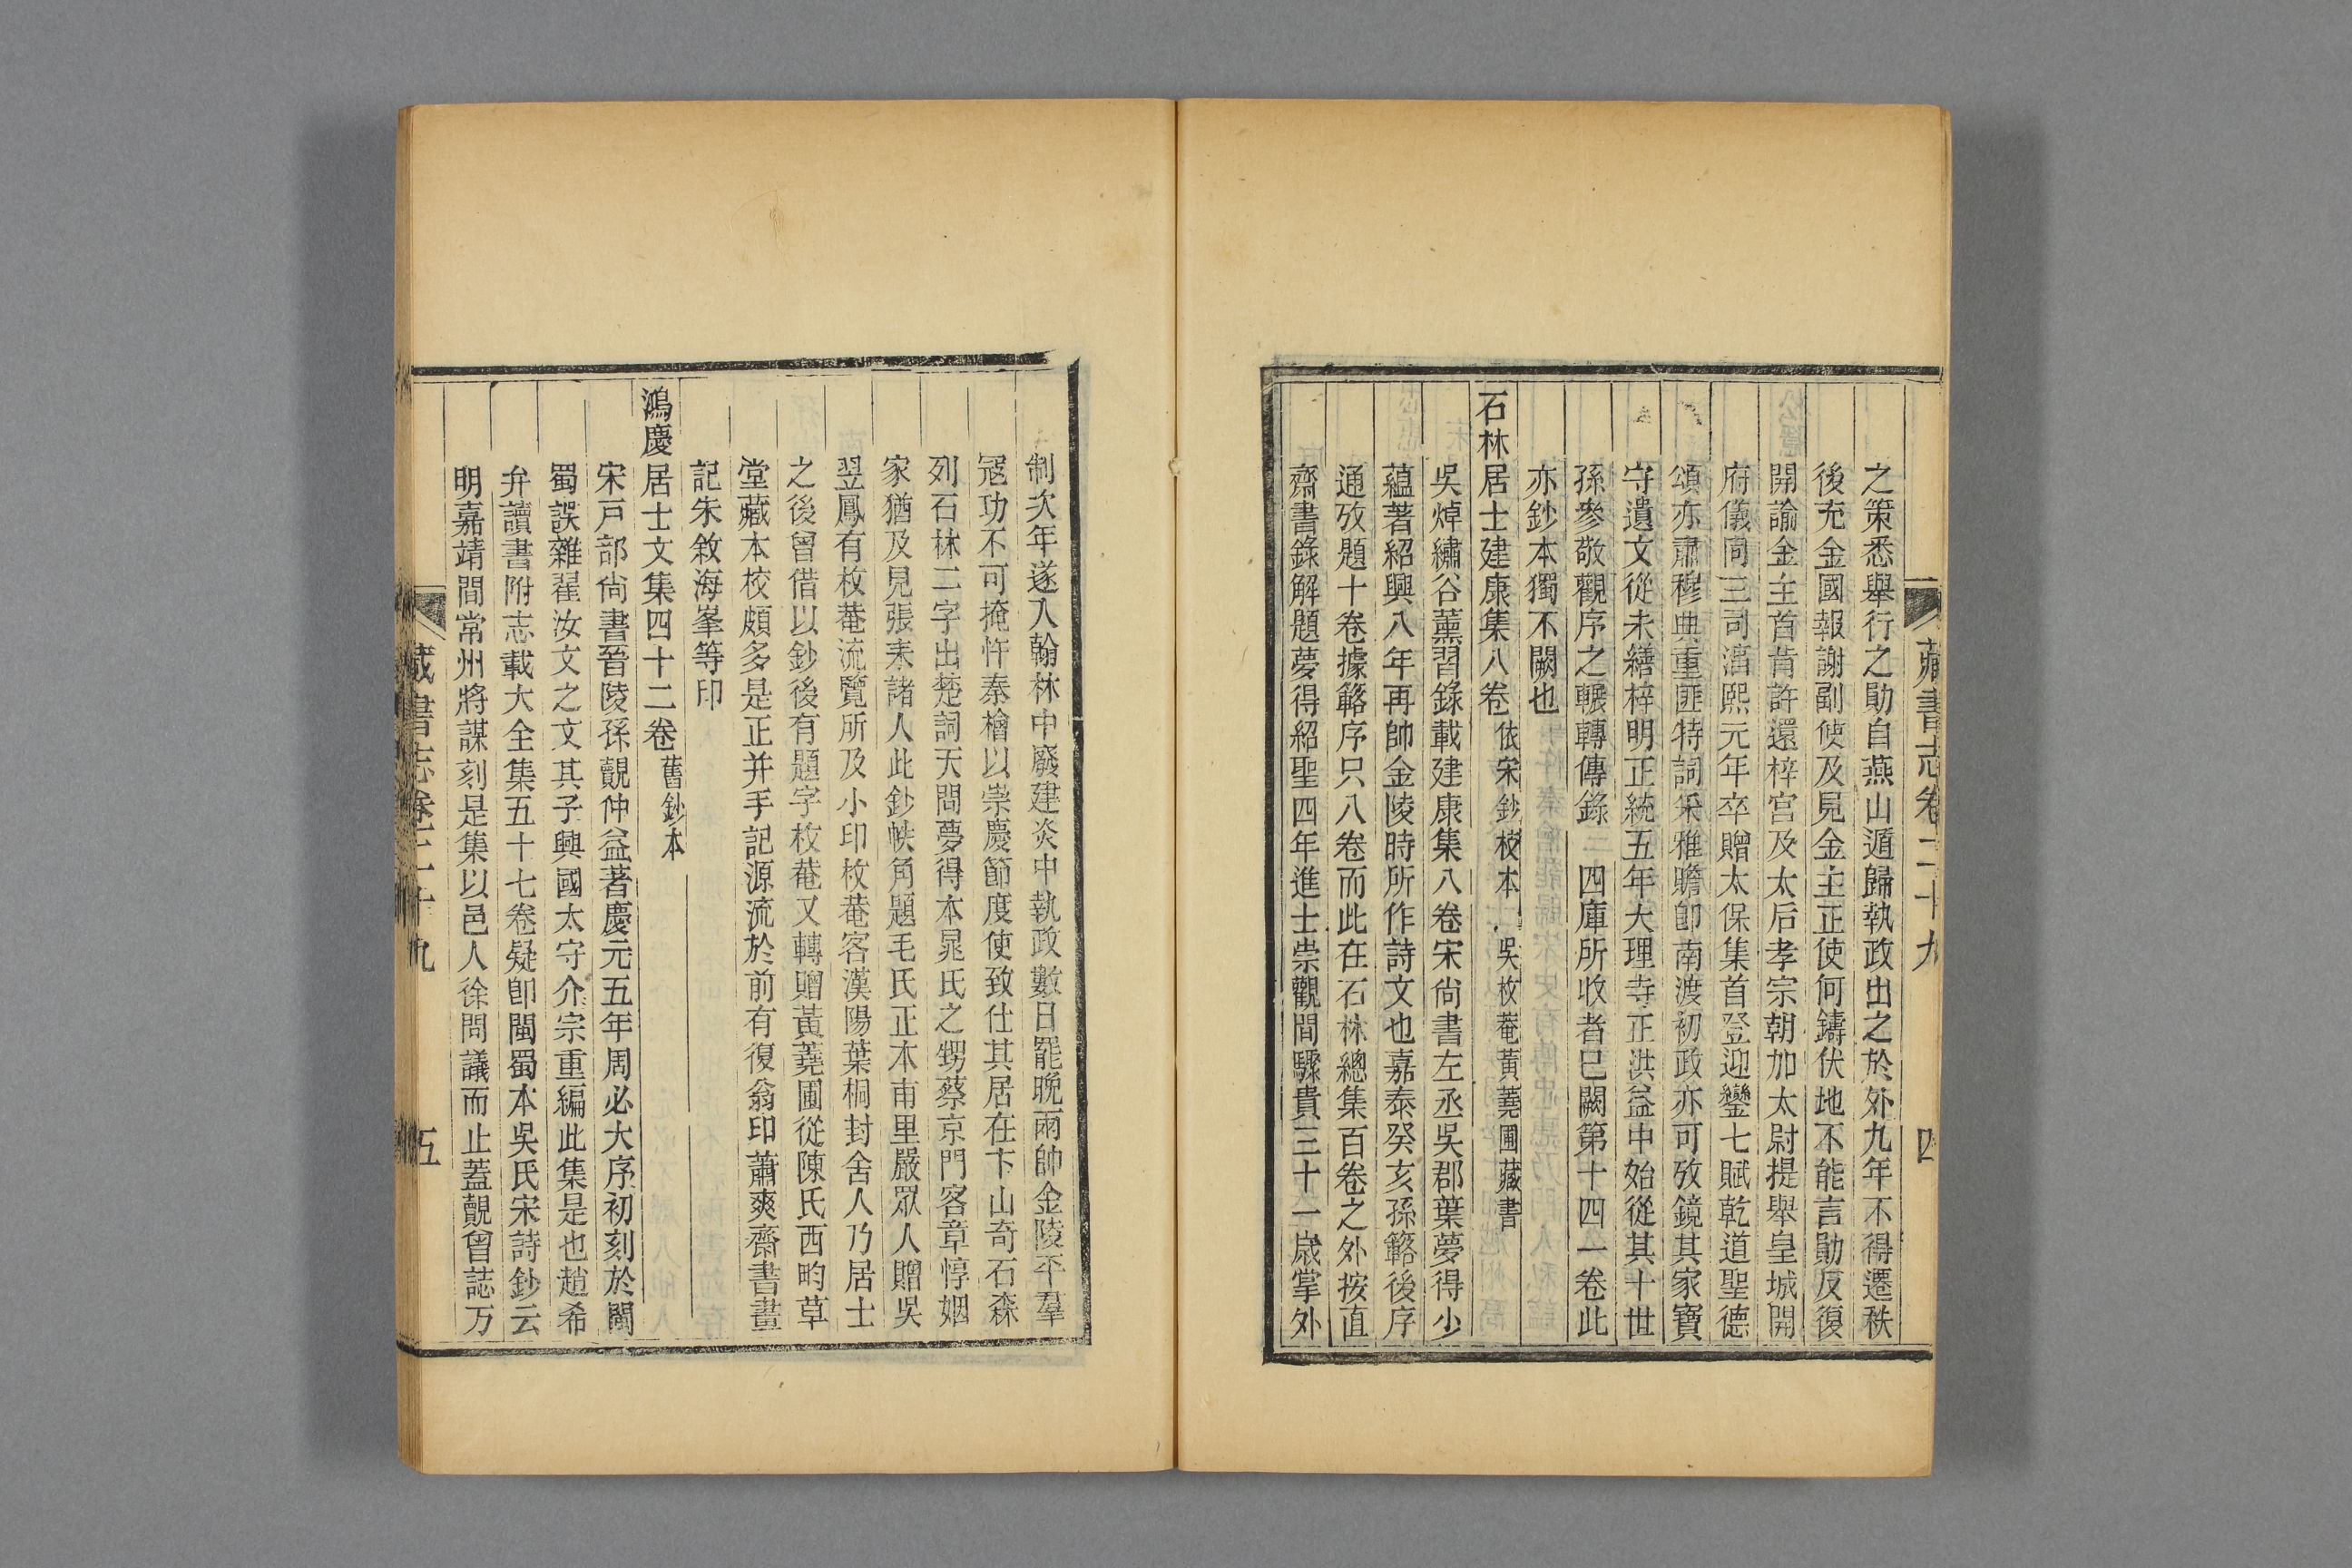 藏書志卷二十九 四
之策悉舉行之勛自燕山遁歸執政出之於外九年不得遷秩
後充金國報謝副使及見金主正使何鑄伏地不能言勛反復
開諭金主首肯許還梓宮及太后孝宗朝加太尉提舉皇城開
府儀同三司淳熙元年卒贈太保集首登迎鑾七賦乾道聖德
頌亦肅穆典重匪特詞采雅贍卽南渡初政亦可攷鏡其家寶
守遺文從未繕梓明正統五年大理寺正洪益中始從其十世
孫參敬觀序之輾轉傳錄 四庫所收者已闕第十四一卷此
亦鈔本獨不闕也
石林居士建康集八卷依宋鈔校本 吳枚菴黃蕘圃藏書
吳焯繡谷薰習錄載建康集八卷宋尚書左丞吳郡葉夢得少
蘊著紹興八年再帥金陵時所作詩文也嘉泰癸亥孫簵後序
通攷題十卷據簵序只八卷而此在石林總集百卷之外按直
齋書錄解題夢得紹聖四年進士崇觀間驟貴三十一歲掌外
制次年遂入翰林中廢建炎中執政數日罷晚兩帥金陵平羣
寇功不可掩忤秦檜以崇慶節度使致仕其居在卞山奇石森
列石林二字出楚詞天問夢得本晁氏之甥蔡京門客章惇姻
家猶及見張耒諸人此鈔帙角題毛氏正本甫里嚴眾人贈吳
翌鳳有枚菴流覽所及小印枚菴客漢陽葉桐封舍人乃居士
之後曾借以鈔後有題字枚菴又轉贈黃蕘圃從陳氏西畇草
堂藏本校頗多是正并手記源流於前有復翁印蕭爽齋書畫
記朱敘海峯等印
鴻慶居士文集四十二卷舊鈔本
宋戸部尚書晉陵孫覿仲益著慶元五年周必大序初刻於閩
蜀誤雜翟汝文之文其子興國太守介宗重編此集是也趙希
弁讀書附志載大全集五十七卷疑卽閩蜀本吳氏宋詩鈔云
明嘉靖間常州將謀刻是集以邑人徐問議而止蓋覿曾誌万
藏書志卷二十九 五